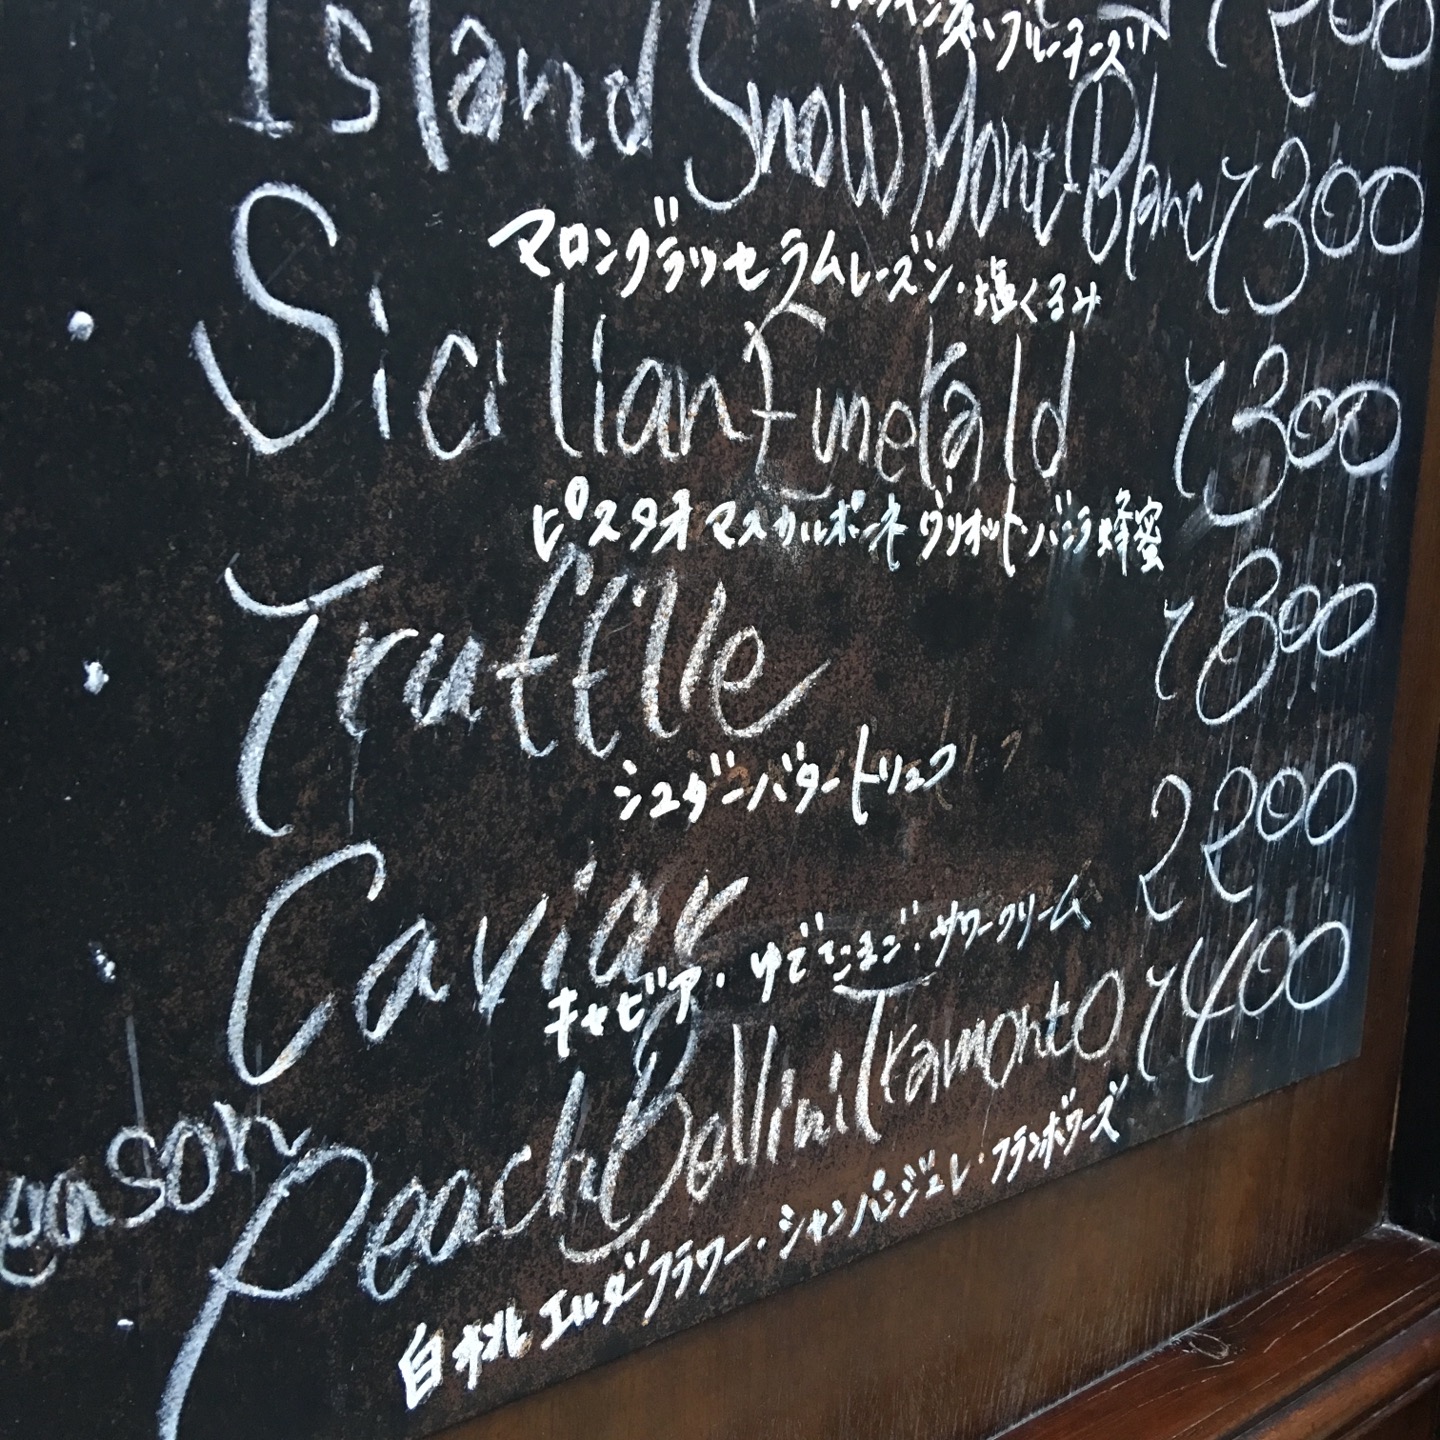 ブルーチーズ 1200
Island Snow Mont-Blanc 1300
マロングラッセ ラムレーズン・塩くるみ
Sicilian Emerald 1300
ピスタチオ マスカルポーネ グリオット・バニラ 蜂蜜
Truffle 1800
シュガーバタートリュフ
Caviar 2200
キャビア・ゆでたまご・サワークリーム
Peach Bellini Tramonto 1400
白桃 エルダーフラワー・シャンパンジュレ・フランボワーズ
eason